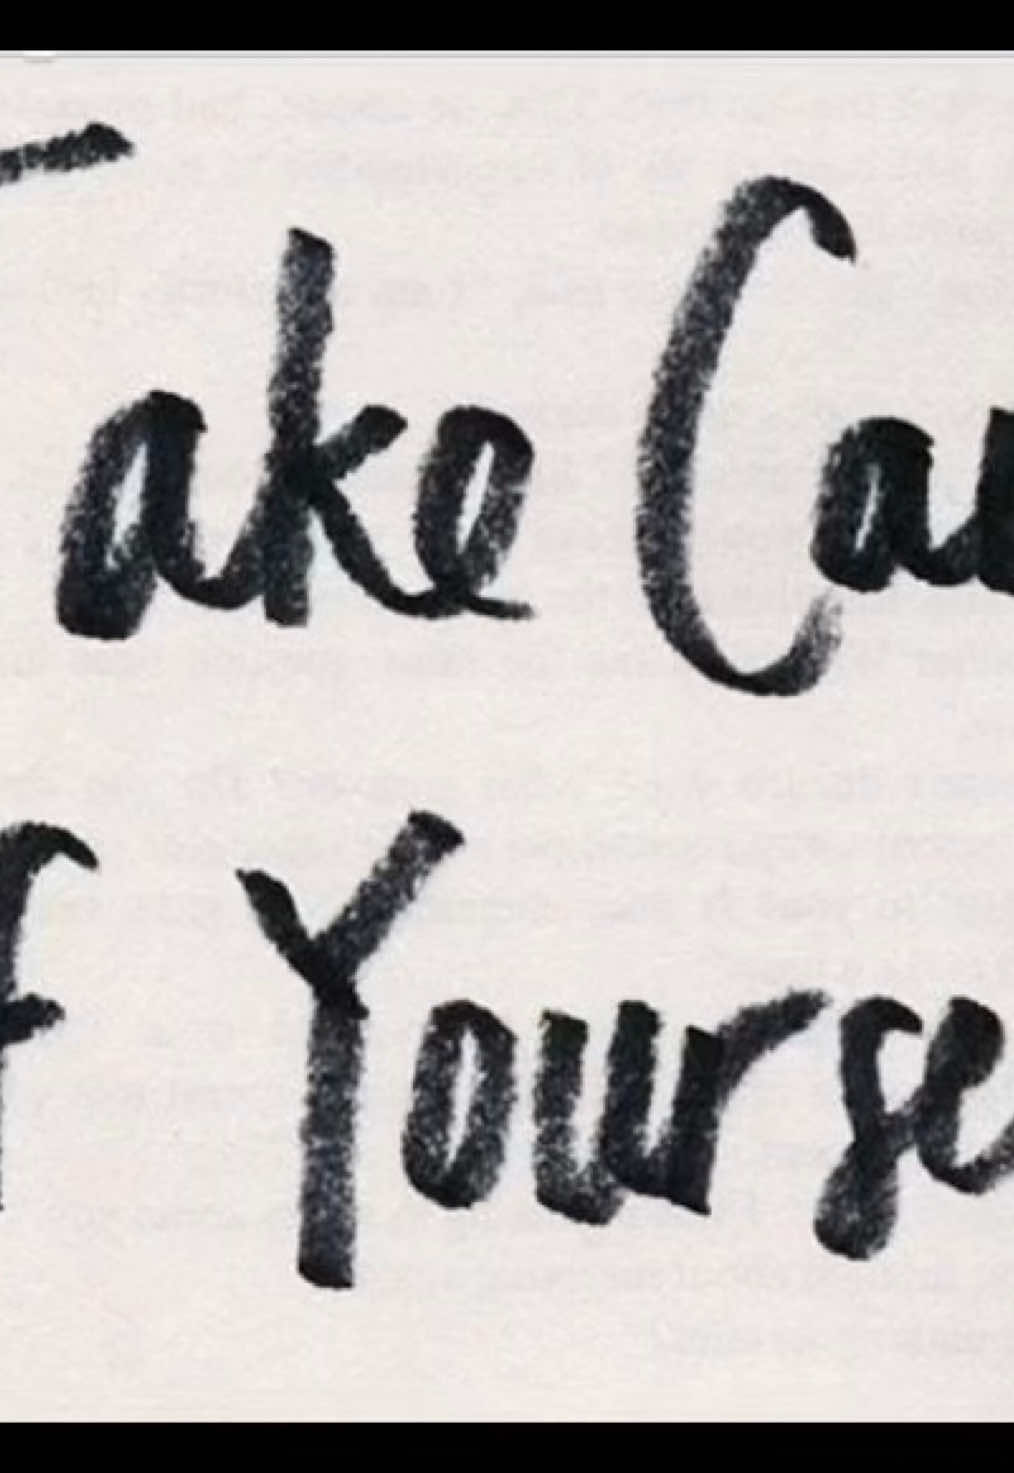 Take Car
f Yourse